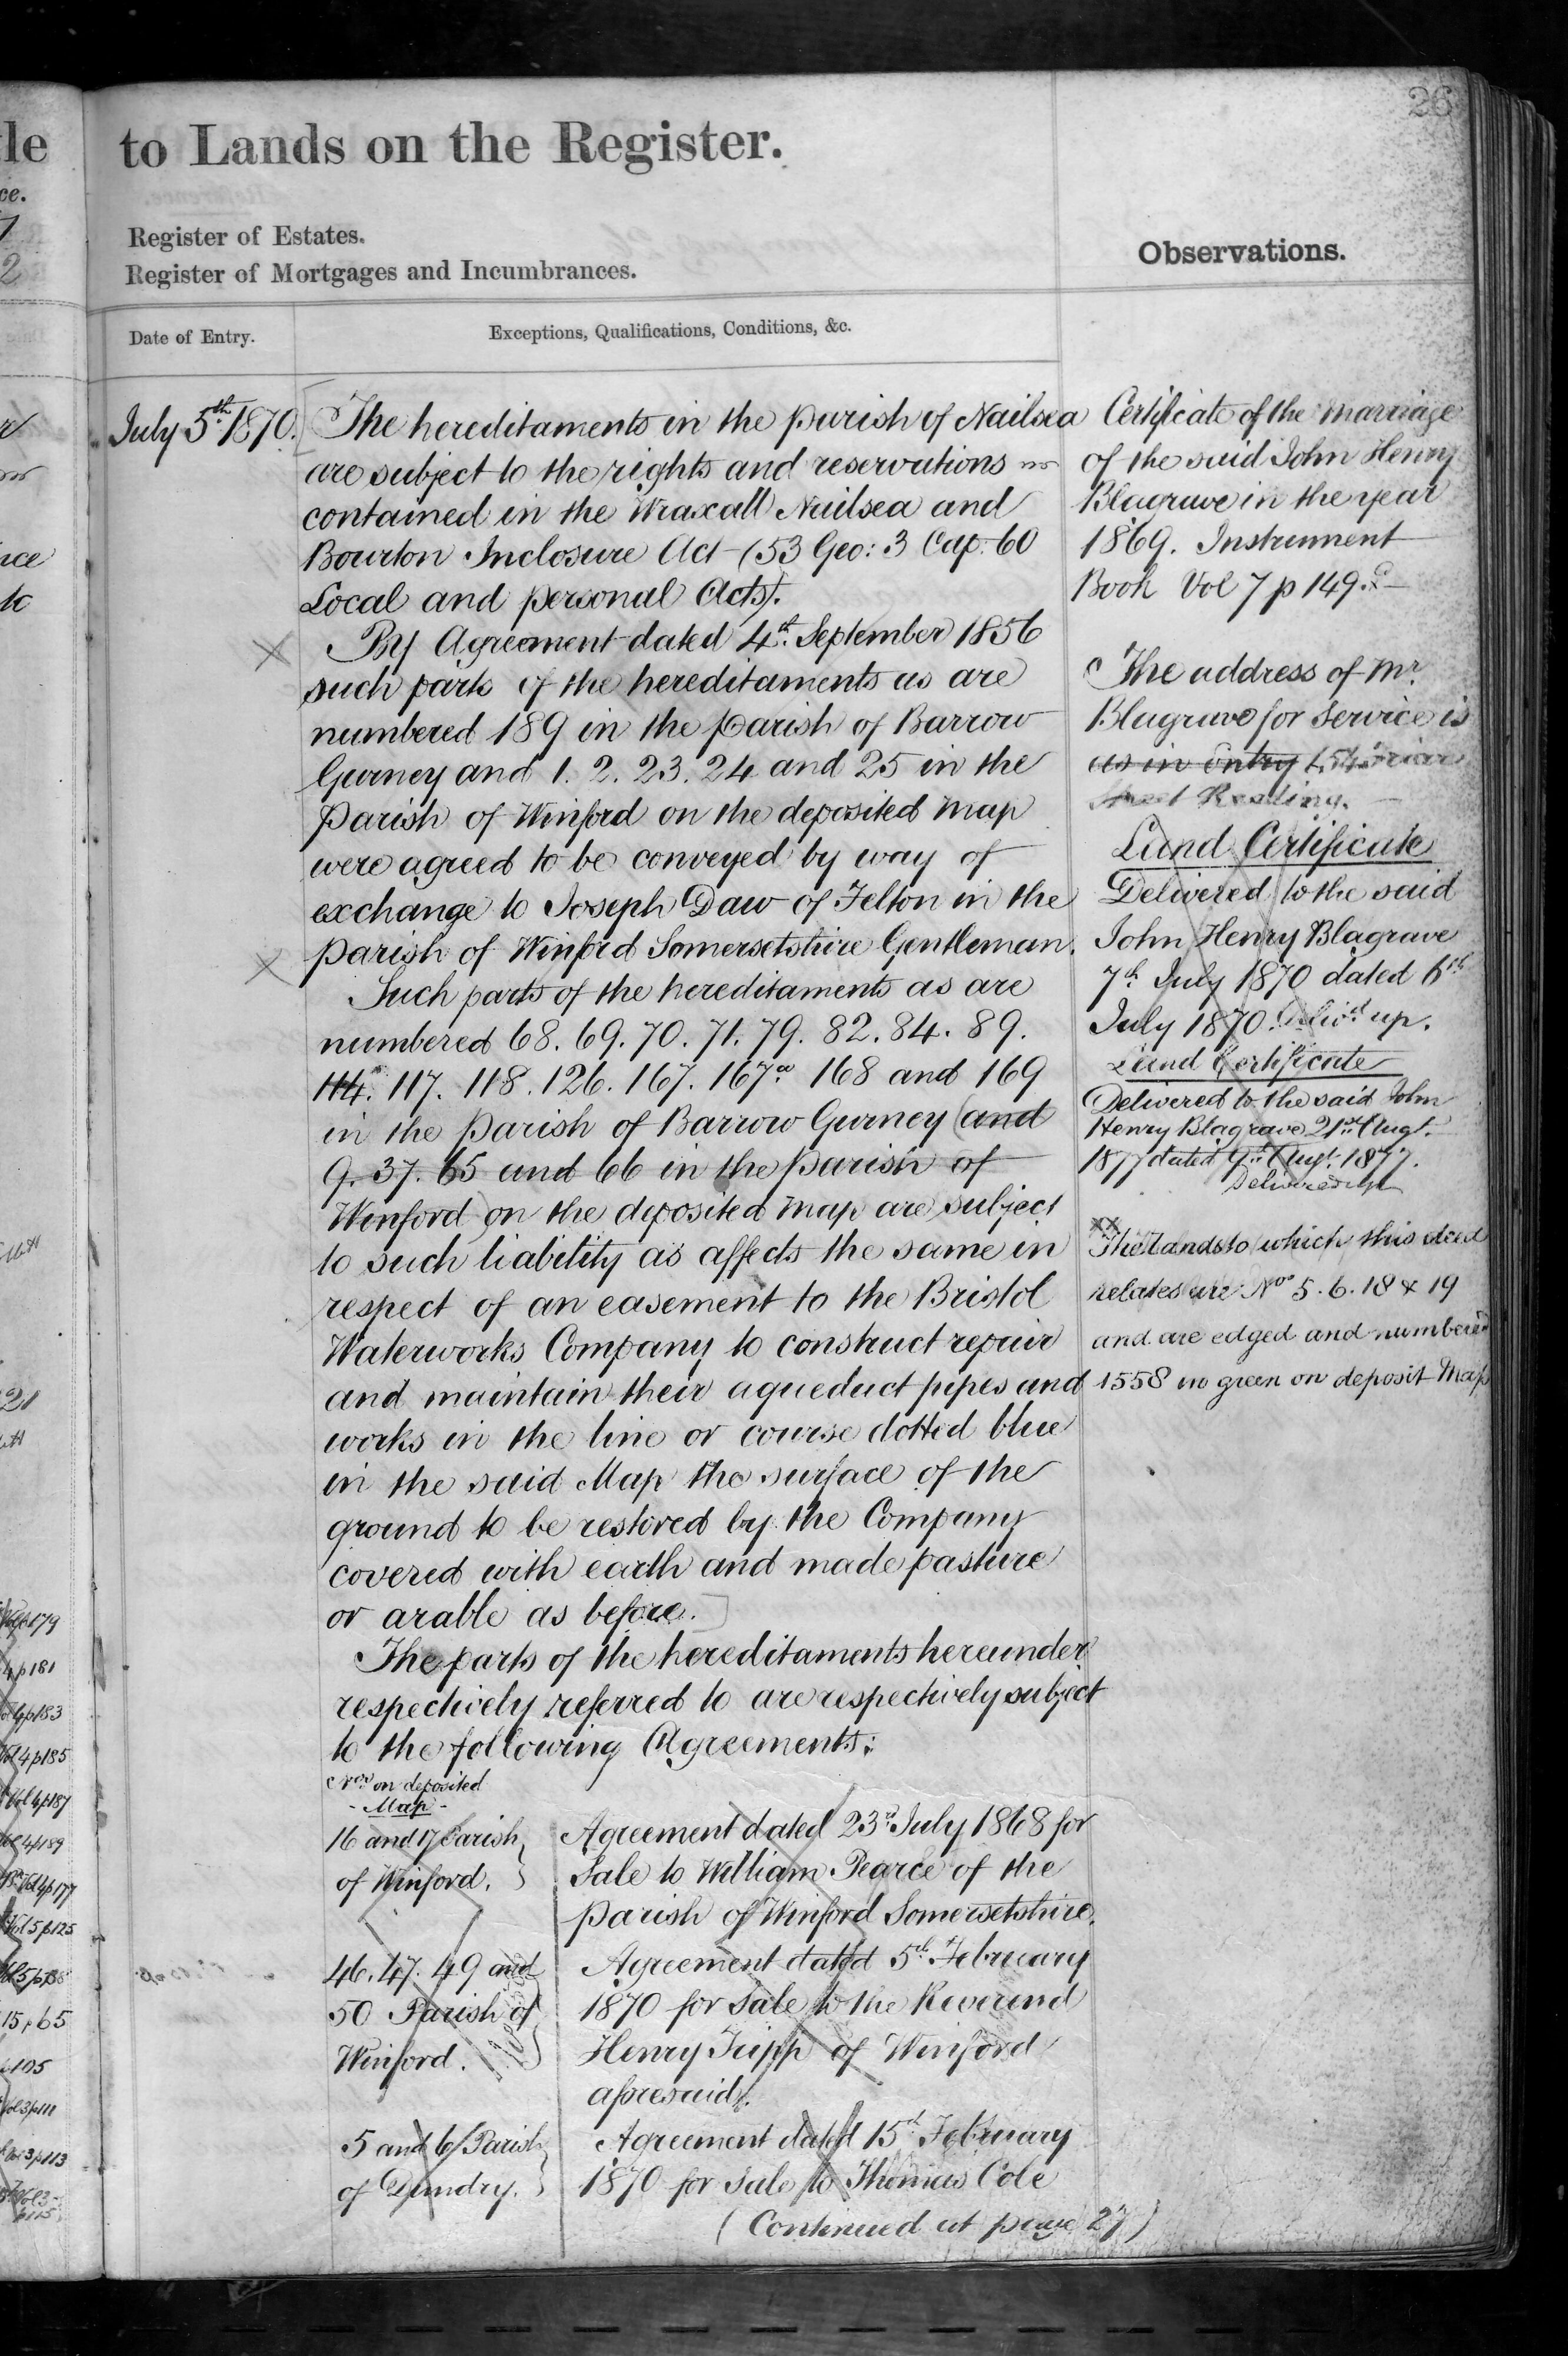 26
to Lands on the Register.
Register of Estates.
Register of Mortgages and Incumbrances.
Observations.
Date of Entry.
Exceptions, Qualifications, Conditions, &c.
July 5th 1870.
The hereditaments in the parish of Nailsea
are subject to the rights and reservations
contained in the Wraxall Nailsea and
Bourton Inclosure Act (53 Geo: 3 Cap. 60
Local and personal Acts).
By Agreement dated 4th September 1856
such parts of the hereditaments as are
numbered 189 in the parish of Barrow
Gurney and 1. 2. 23. 24 and 25 in the
Parish of Winford on the deposited map
were agreed to be conveyed by way of
exchange to Joseph Daw of Felton in the
parish of Winford Somersetshire Gentleman.
Such parts of the hereditaments as are
numbered 68. 69. 70. 71. 79. 82. 84. 89.
114. 117. 118. 126. 167. 167a 168 and 169
in the parish of Barrow Gurney (and
9. 37. 65 and 66 in the parish of
Winford) on the deposited map are subject
to such liability as affects the same in
respect of an easement to the Bristol
Waterworks Company to construct repair
and maintain their aqueduct pipes and
works in the line or course dotted blue
in the said Map the surface of the
ground to be restored by the Company
covered with earth and made pasture
or arable as before.
The parts of the hereditaments hereunder
respectively referred to are respectively subject
to the following Agreements:
Nos on deposited
- Map -
16 and 17 Parish
of Winford.
Agreement dated 23rd July 1868 for
Sale to William Pearce of the
parish of Winford Somersetshire.
46. 47. 49 and
50 Parish of
Winford.
Agreement dated 5th February
1870 for Sale to the Reverend
Henry Tripp of Winford
aforesaid.
5 and 6 Parish
of Dundry.
Agreement dated 15th February
1870 for Sale to Thomas Cole
(Continued at page 27)
Certificate of the marriage
of the said John Henry
Blagrave in the year
1869. Instrument
Book Vol 7 p 149.
The address of Mr.
Blagrave for Service is
as in Entry 1.
Street Reading.
Land Certificate
Delivered to the said
John Henry Blagrave
7th July 1870 dated 6th
July 1870. up.
Land Certificate
Delivered to the said John
Henry Blagrave 21st Augt.
1877 dated 9th Augt. 1877.
Delivered up
xx
The lands to which this deed
relates are Nos 5. 6. 18 & 19
and are edged and numbered
1558 in green on deposit Map